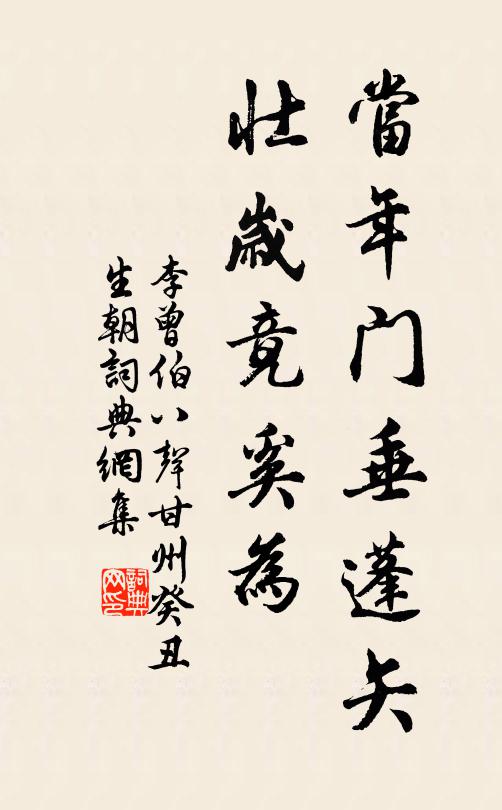 當年門垂蓬矢
壯歲竟奚為
李曾伯八聲甘州癸丑
生朝詞典網集
詞典
网印